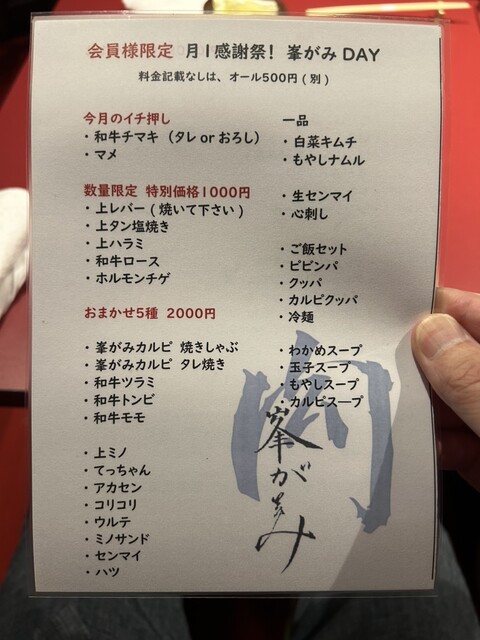 会員様限定 月1感謝祭! 峯がみDAY
料金記載なしは、オール500円(別)
今月のイチ押し
・和牛チマキ (タレorおろし)
・マメ
数量限定 特別価格1000円
・上レバー(焼いて下さい)
・上タン塩焼き
・上ハラミ
・和牛ロース
・ホルモンチゲ
おまかせ5種 2000円
・峯がみカルビ 焼きしゃぶ
・峯がみカルビ タレ焼き
・和牛ツラミ
・和牛トンビ
・和牛モモ
・上ミノ
・てっちゃん
・アカセン
・コリコリ
・ウルテ
・ミノサンド
・センマイ
・ハツ
一品
・白菜キムチ
・もやしナムル
・生センマイ
・心刺し
・ご飯セット
・ビビンパ
・クッパ
・カルビクッパ
・冷麺
・わかめスープ
・玉子スープ
・もやしスープ
・カルビスープ
肉
峯がみ